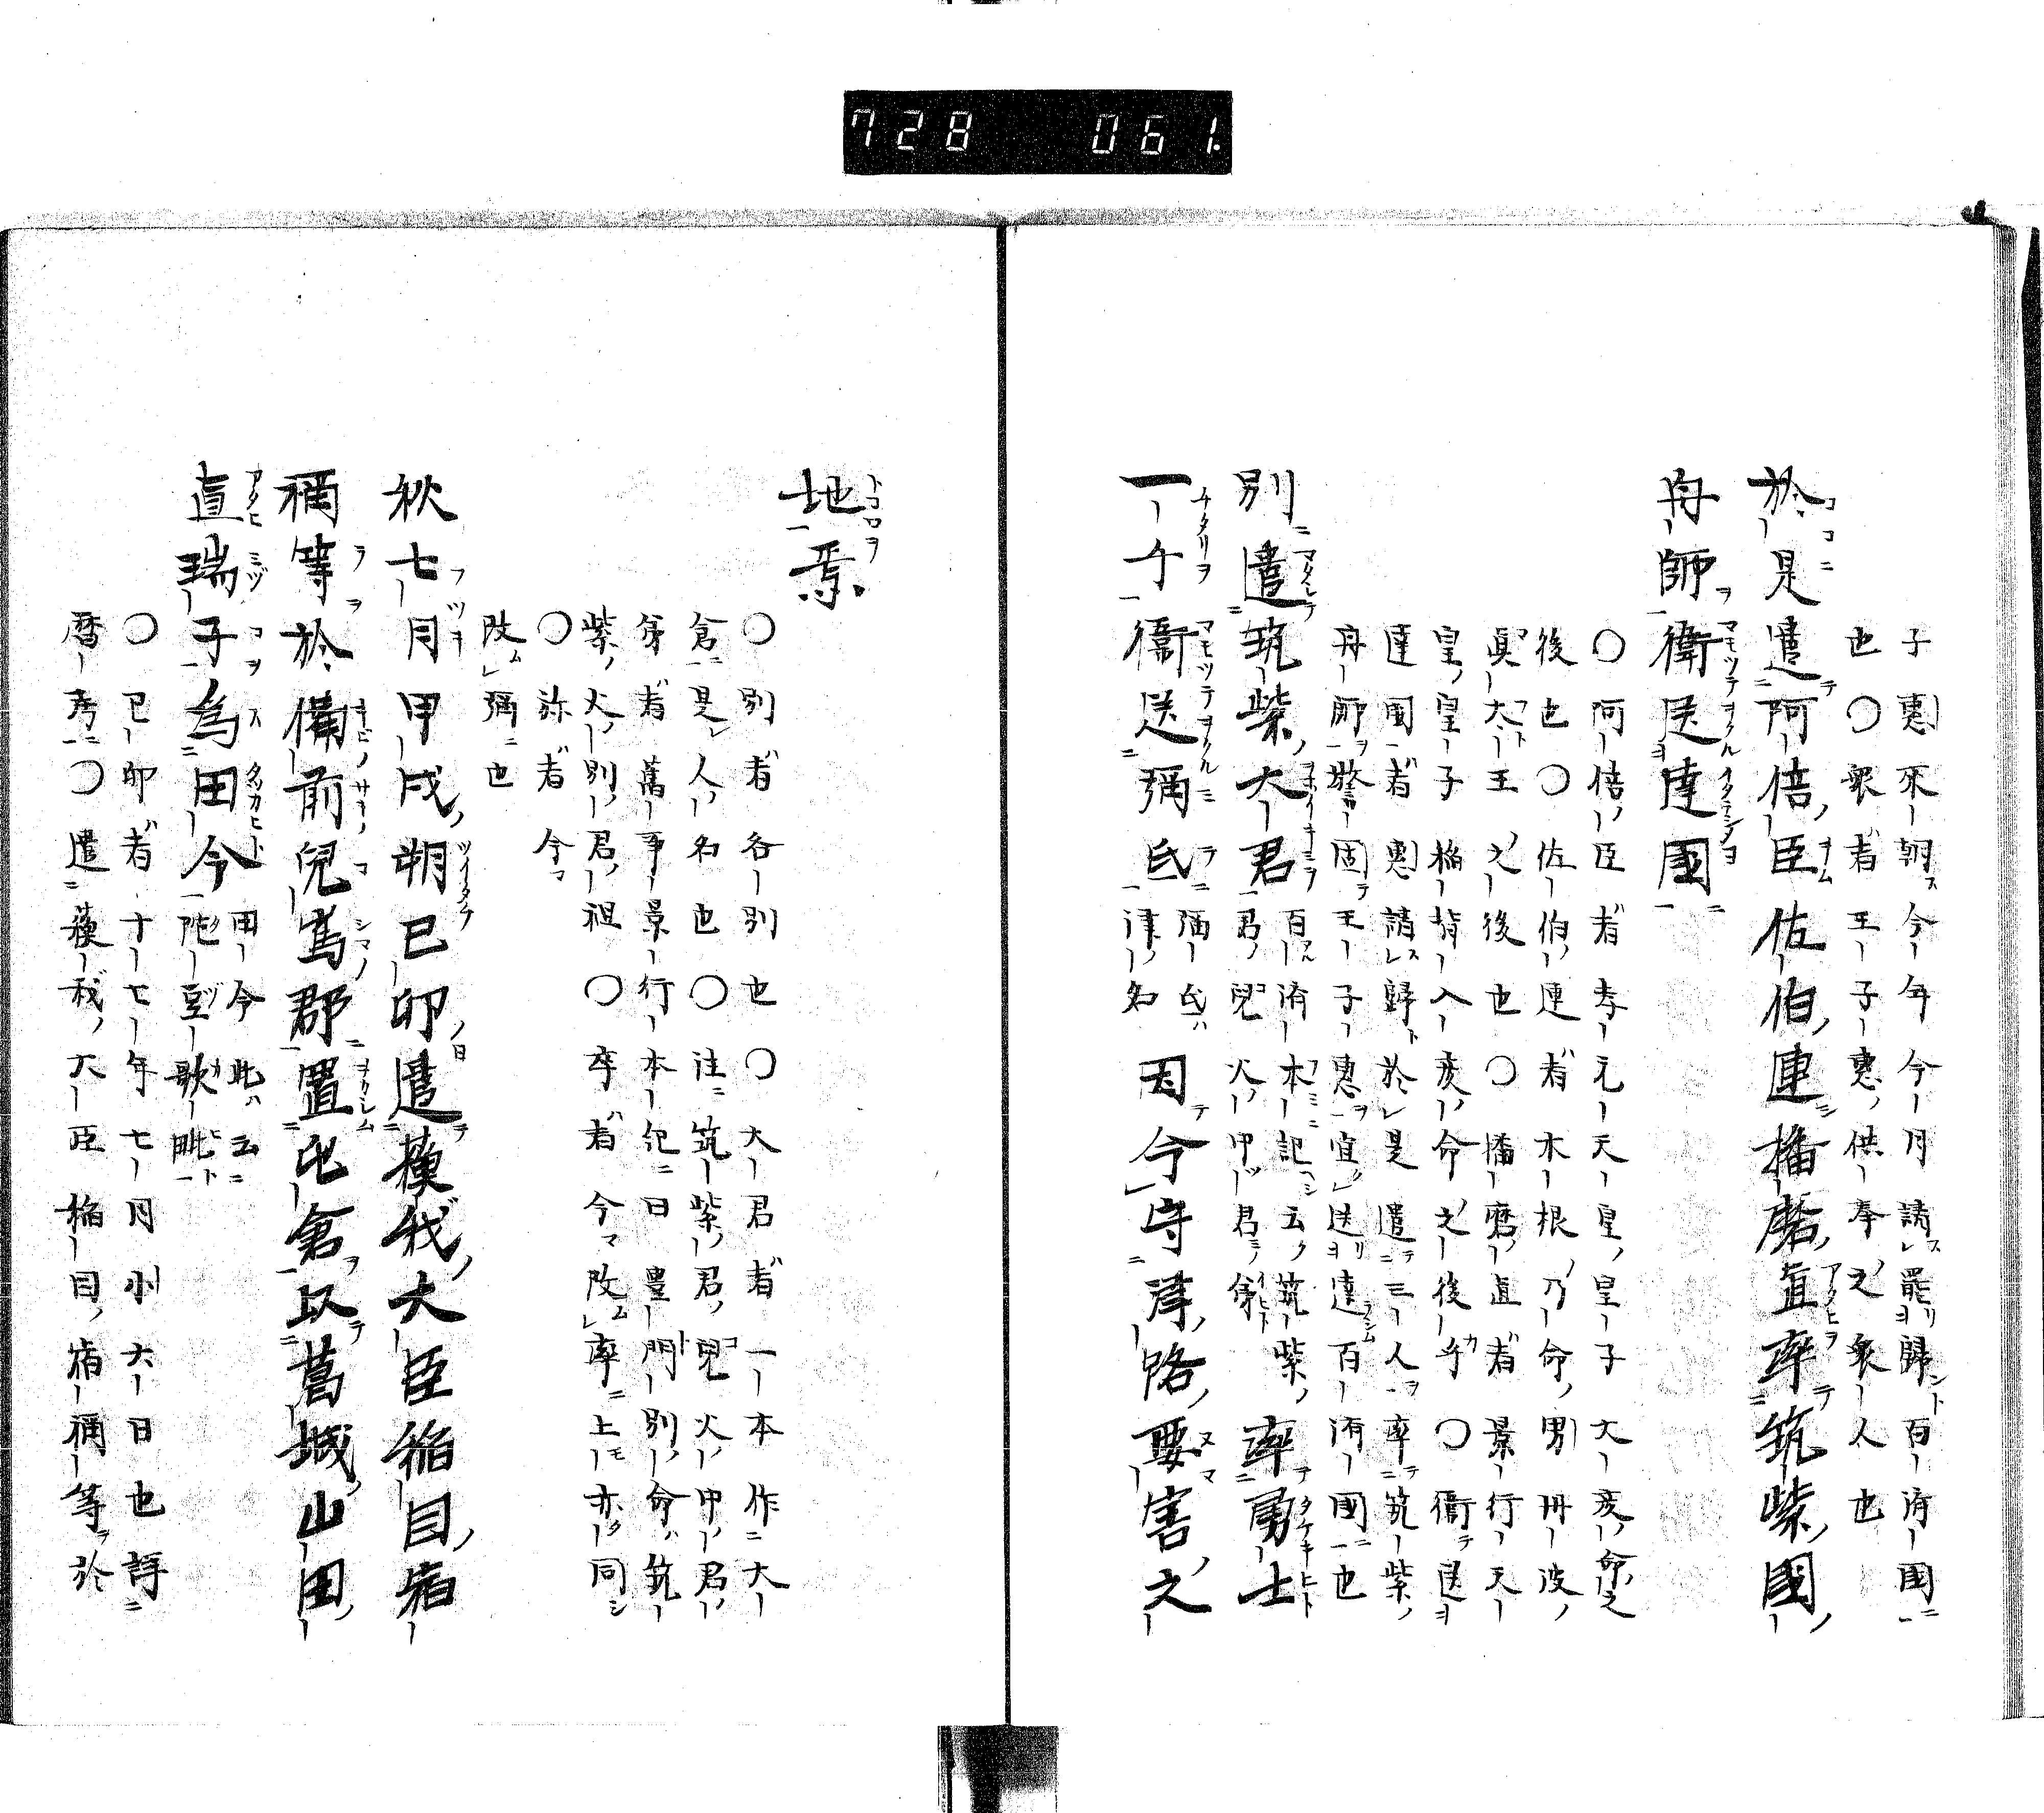 728 061.
子惠來朝今年今月請罷歸百済國
也〇衆者王子惠供奉之衆人也
於是遣阿倍臣佐伯連播磨直率筑紫國
舟師衛送達國
〇阿倍臣者孝元天皇皇子大彦命之
後也〇佐伯連者木根乃命男丹波
眞太王之後也〇播磨直者景行天
皇皇子稲背入彦命之後乎〇衛送
達國者惠請歸於是遣三人率筑紫
舟師警固王子惠宜送達百済國也
別遣筑紫火君百済本記云筑紫君兒火中君弟率勇士
一千衛送彌氐彌氐津名因令守津路要害之
地焉
〇別者各別也〇大君者一本作大
倉是人名也〇注筑紫君兒火中君
弟者萬事景行本紀曰豊門別命筑
紫火別君祖〇率者今改率上亦同
〇弥者今
改彌也
秋七月甲戌朔己卯遣蘓我大臣稲目宿
禰等於備前兒嶌郡置屯倉以葛城山田
直瑞子為田令田令此云陀豆歌毗
〇己卯者十七年七月小六日也詳
暦考〇遣蘓我大臣稲目宿禰等於